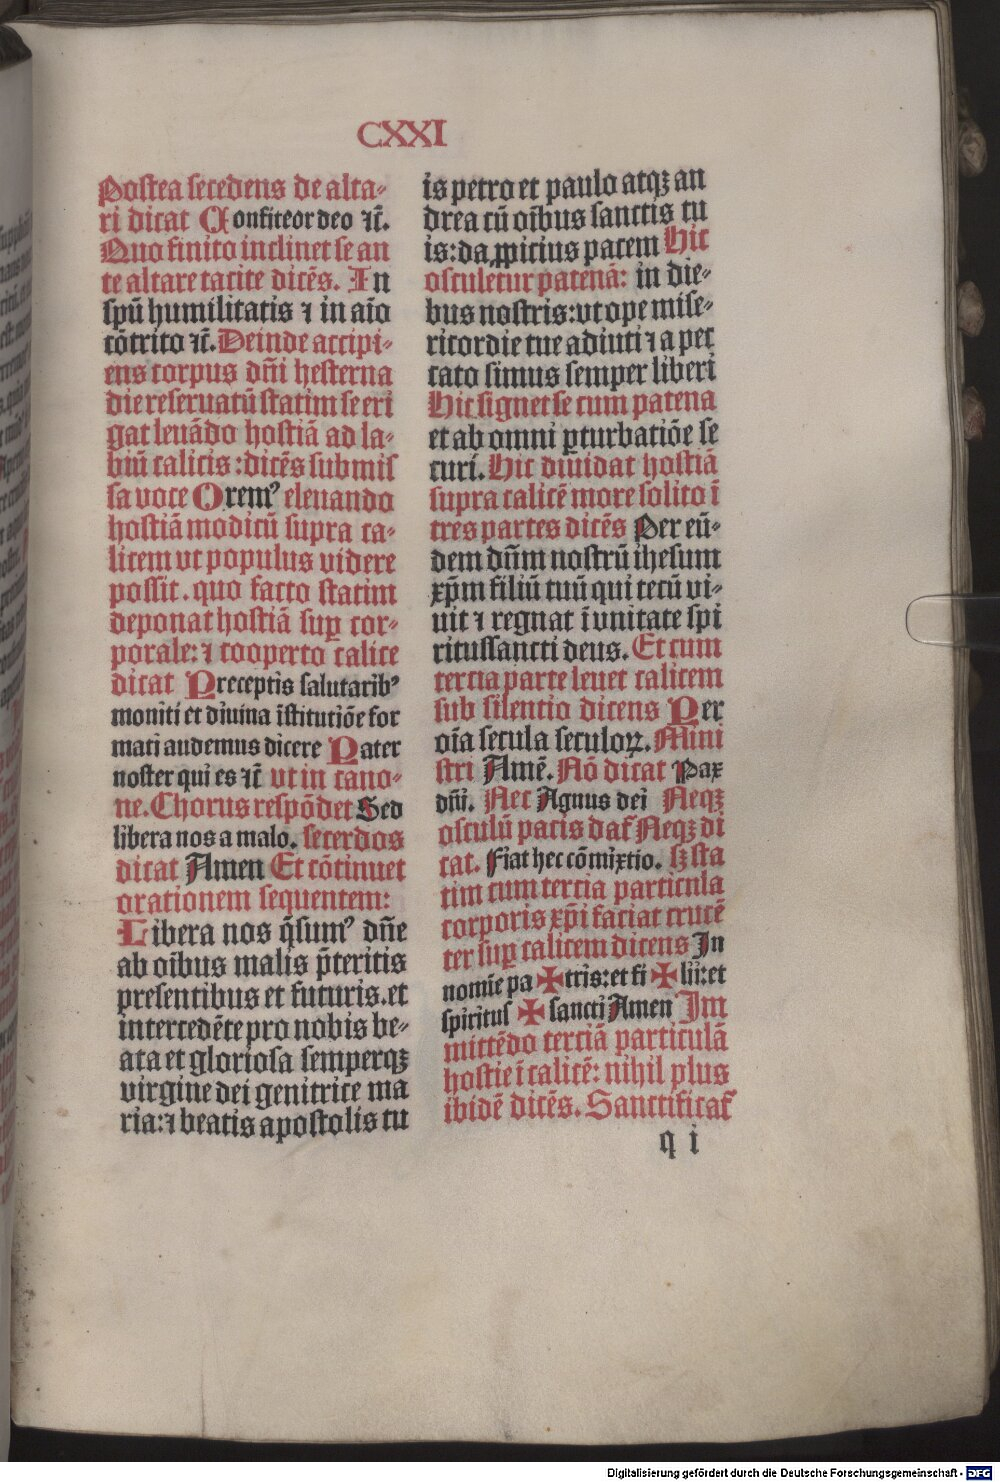 CXXI
Postea secedens de alta-
ri dicat Confiteor deo ⁊c̄.
Quo finito inclinet se an
te altare tacite dicēs. In
spū humilitatis ⁊ in aīo
cōtrito ⁊c̄. Deinde accipi-
ens corpus dn̄i hesterna
die reseruatū statim se eri
gat leuādo hostiā ad la-
biū calicis : dicēs submis
sa voce Oremꝰ eleuando
hostiā modicū supra ca-
licem vt populus videre
possit . quo facto statim
deponat hostiā suꝑ cor-
porale: ⁊ cooperto calice
dicat Preceptis salutaribꝰ
moniti et diuina īstitutiōe for
mati audemus dicere Pater
noster qui es ⁊c̄ vt in cano-
ne. Chorus respōdet Sed
libera nos a malo. secerdos
dicat Amen Et cōtinuet
orationem sequentem:
Libera nos q̄sumꝰ dn̄e
ab oībus malis p̄teritis
presentibus et futuris. et
intercedēte pro nobis be-
ata et gloriosa semperqꝫ
virgine dei genitrice ma
ria: ⁊ beatis apostolis tu
is petro et paulo atqꝫ an
drea cū oībus sanctis tu
is: da ꝓpicius pacem Hic
osculetur patenā: in die-
bus nostris: vt ope mise-
ricordie tue adiuti ⁊ a pec
cato simus semper liberi
Hic signet se cum patena
et ab omni ꝑturbatiōe se
curi. Hic diuidat hostiā
supra calicē more solito ī
tres partes dicēs Per eū-
dem dn̄m nostrū ihesum
xp̄m filiū tuū qui tecū vi-
uit ⁊ regnat ī vnitate spi
ritussancti deus. Et cum
tercia parte leuet calicem
sub silentio dicens Per
oīa secula seculoꝝ. Mini
stri Amē. Nō dicat Pax
dn̄i. Nec Agnus dei Neqꝫ
osculū pacis daf̄ Neqꝫ di
cat. Fiat hec cōmixtio. sꝫ sta
tim cum tercia particula
corporis xp̄i faciat crucē
ter suꝑ calicem dicens In
nomīe pa ✠ tris: et fi ✠ lii: et
spiritus ✠ sancti Amen Im
mittēdo terciā particulā
hostie ī calicē: nihil plus
ibidē dicēs. Sanctificaf̄
q i
Digitalisierung gefördert durch die Deutsche Forschungsgemeinschaft - DFG